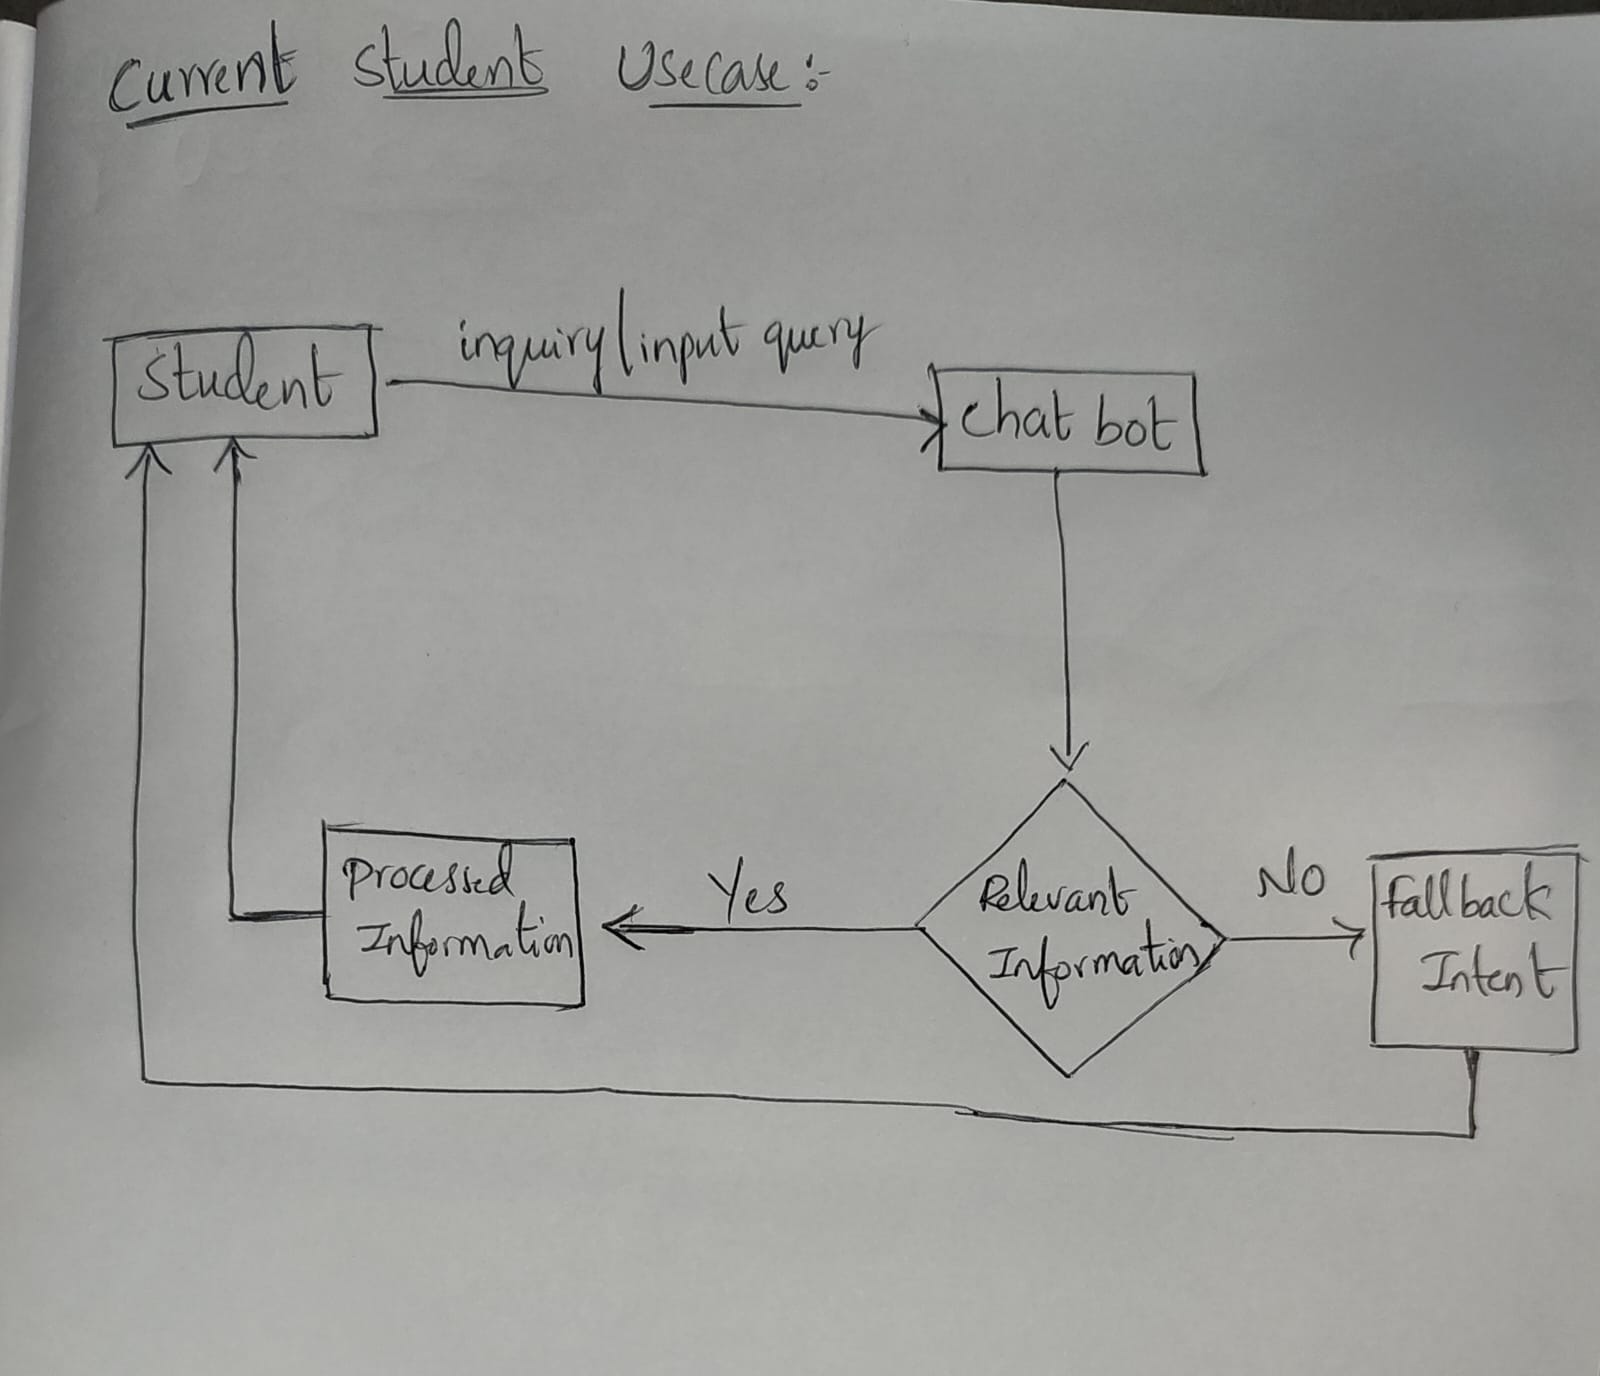 Current Student Usecase:-
Student
inquiry/input query
Chat bot
Relevant
Information
Yes
NO
Processed
Information
Fallback
Intent